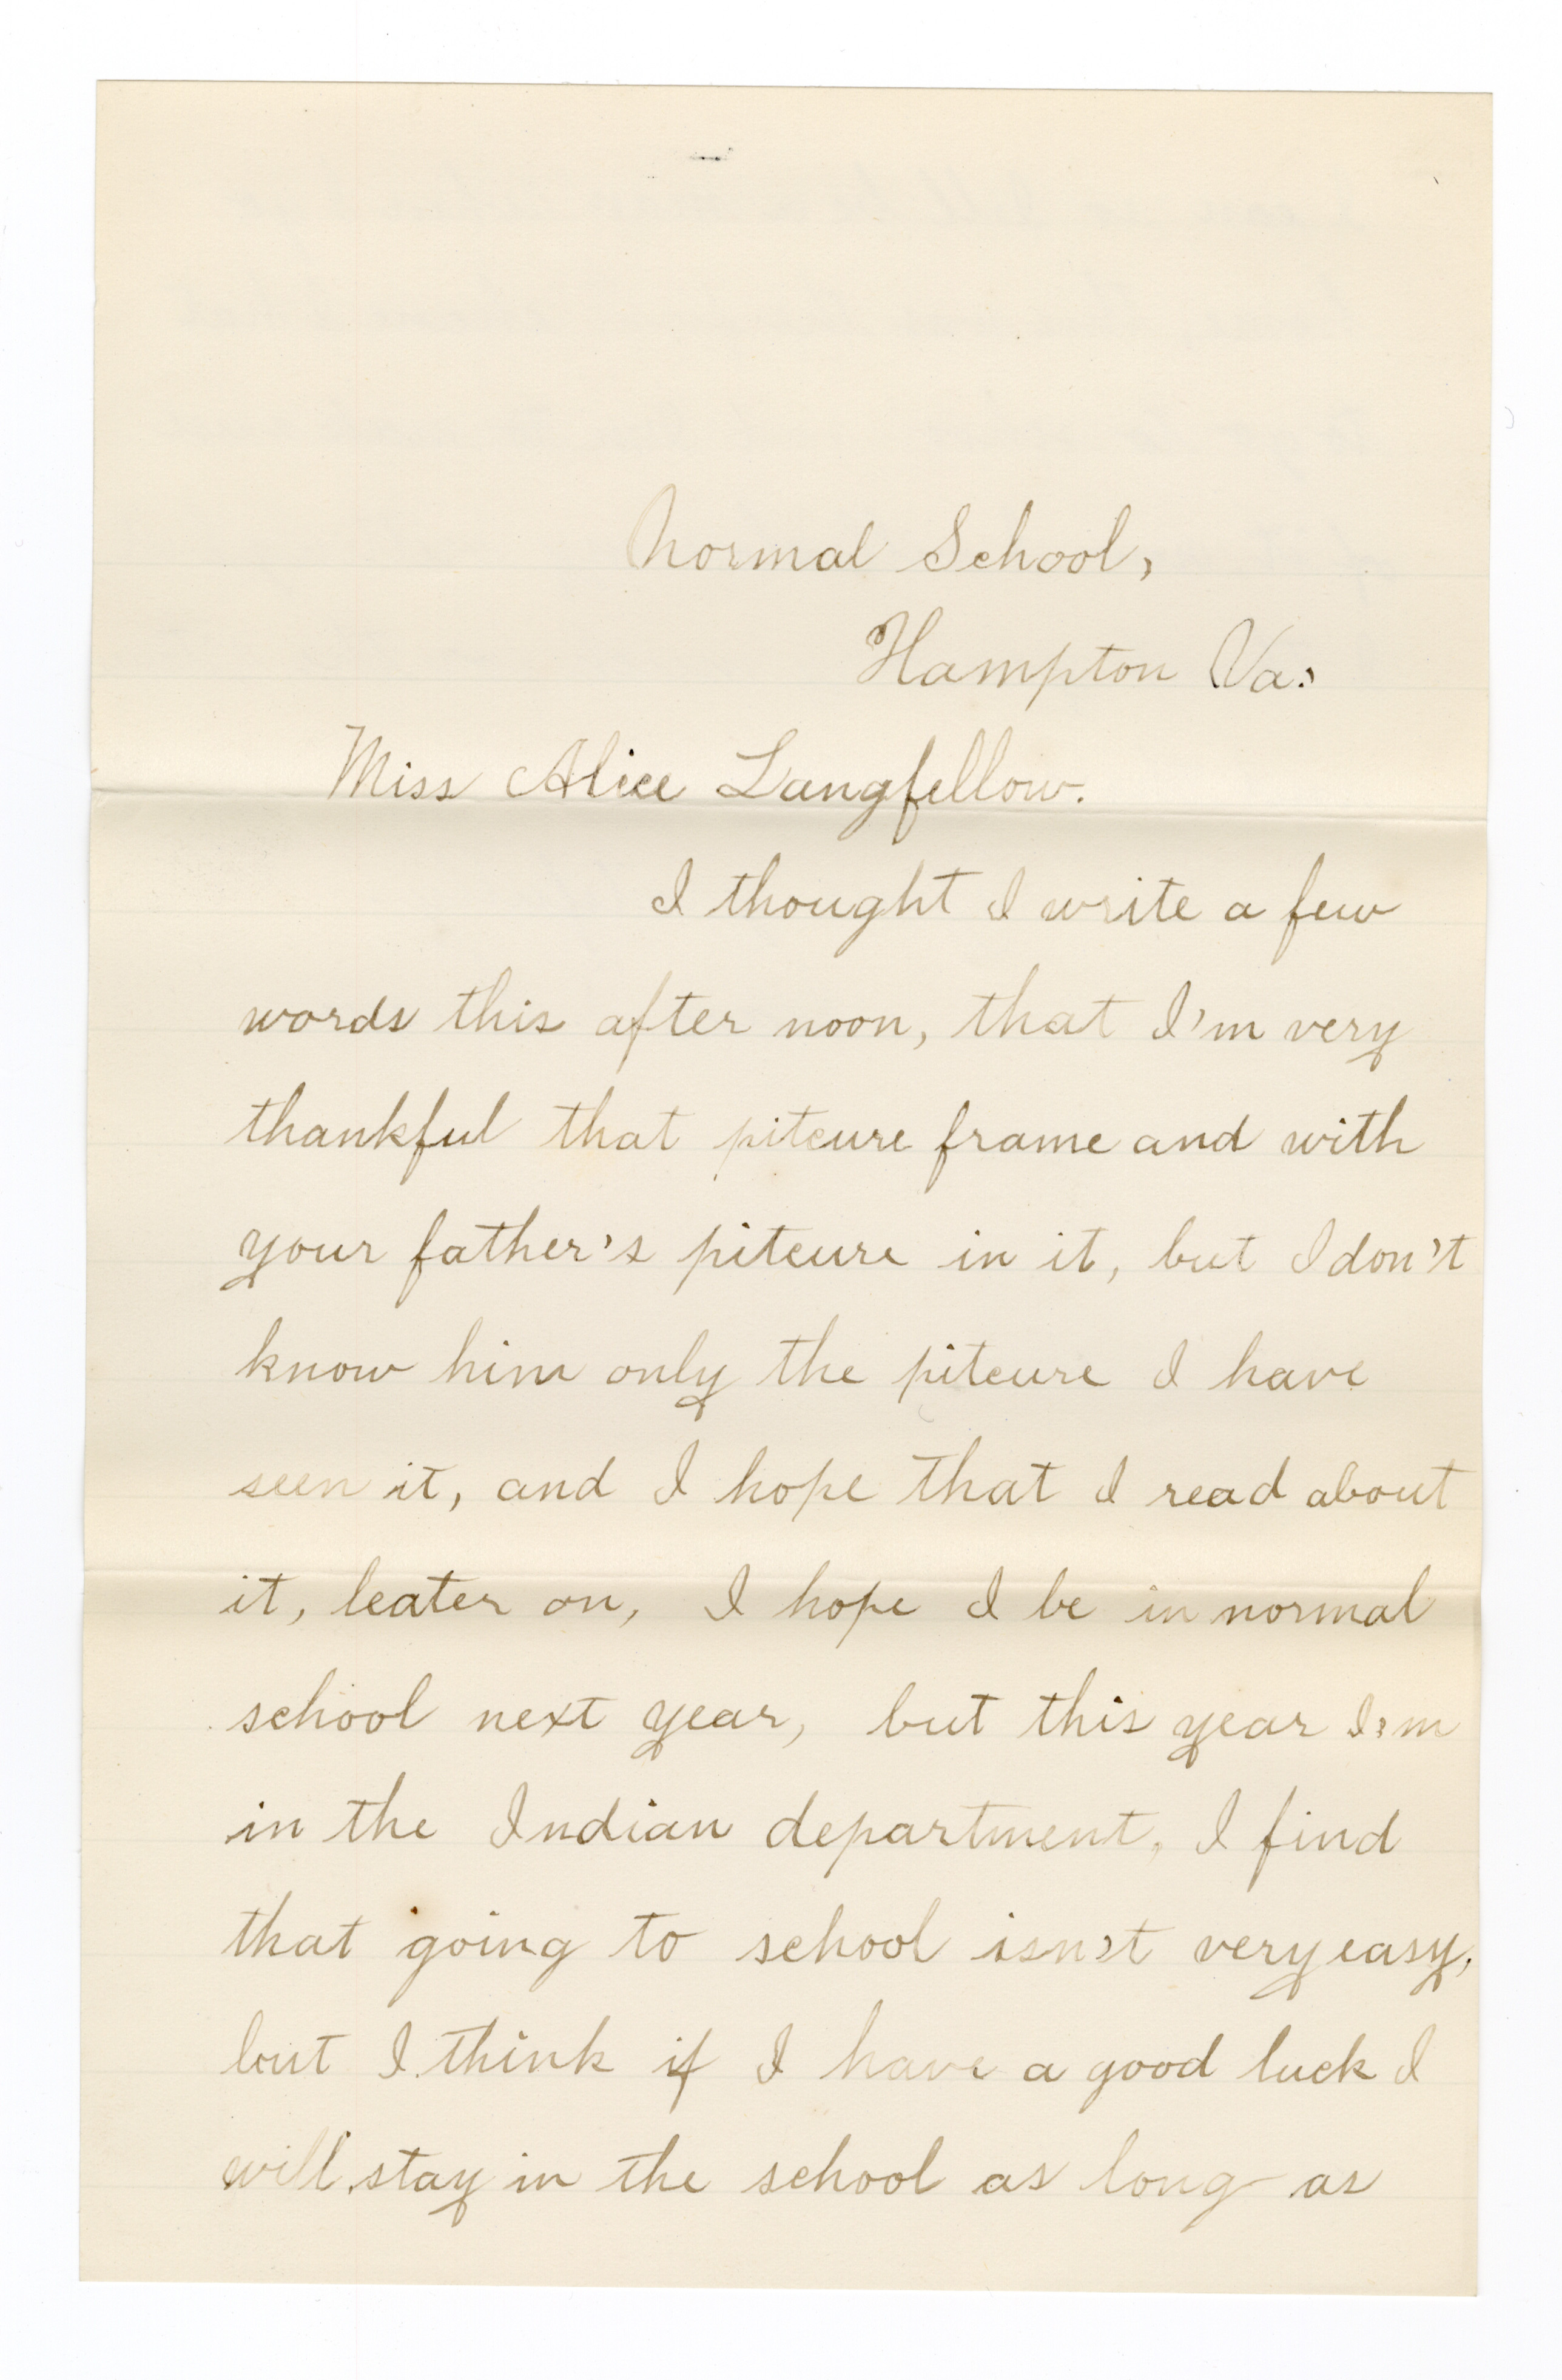 Normal School,
Hampton Va.,
Miss Alice Langfellow.
I thought I write a few
words this after noon, that I'm very
thankful that pitcure frame and with
your father's pitcure in it, but I don't
know him only the pitcure I have
seen it, and I hope that I read about
it, leater on, I hope I be in normal
school next year, but this year I'm
in the Indian department, I find
that going to school isn't very easy,
but I think if I have a good luck I
will stay in the school as long as